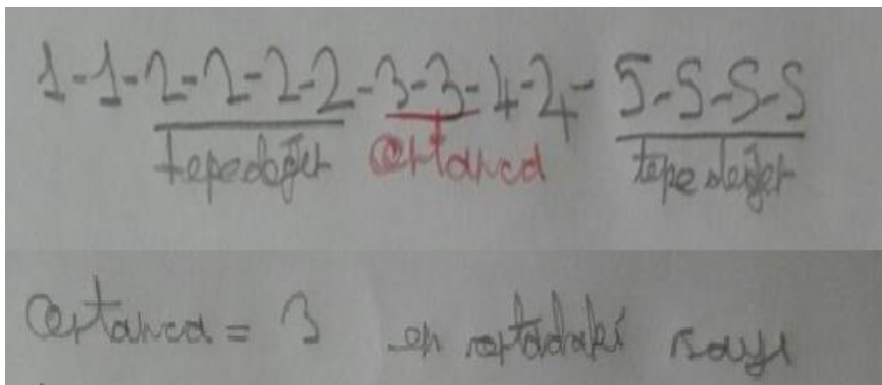 1-1-2-2-2-2-3-3-4-4-5-5-5-5
tepedeğer ortanca tepe değer
Ortanca = 3 en ortadaki sayı